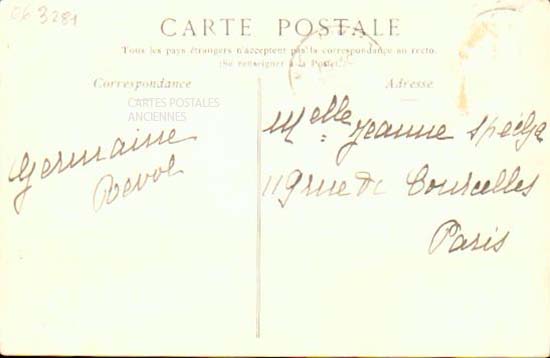 C63281
CARTE POSTALE
Tous les pays étrangers n'acceptent pas la correspondance au recto.
(Se renseigner à la Poste)
Correspondance
Adresse
CARTES POSTALES
ANCIENNES
Germaine
Revol
Melle Jeanne
119 rue de Courcelles
Paris